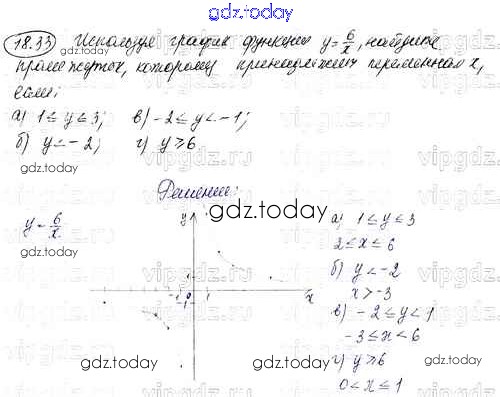 gdz.today
18.33 Используя график функции y=6/x, найдите
промежуток, которому принадлежит переменная x,
если:
а) 1≤y≤3; в) -2≤y<-1;
б) y<-2; г) y≥6
gdz.today
gdz.today
Решение:
gdz.today
y=6/x
y
а) 1≤y≤3
2≤x≤6
gdz.today
б) y<-2
x>-3
-1 0 1 x
-1
в) -2≤y<1
-3≤x<6
г) y≥6
0<x≤1
gdz.today
gdz.today
gdz.today
vipgdz.ru